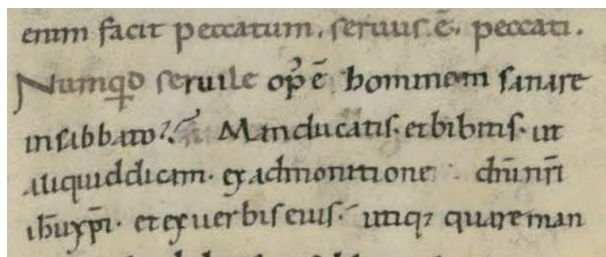 enim facit peccatum, seruus ē, peccati.
Numqd seruile op̄ ē hominem sanare
insabbato? Manducatis· etbibitis· ut
aliquiddicam· exadmonitione dn̄inr̄i
ih̄uxp̄i· etexuerbiseius· utiq; quareman